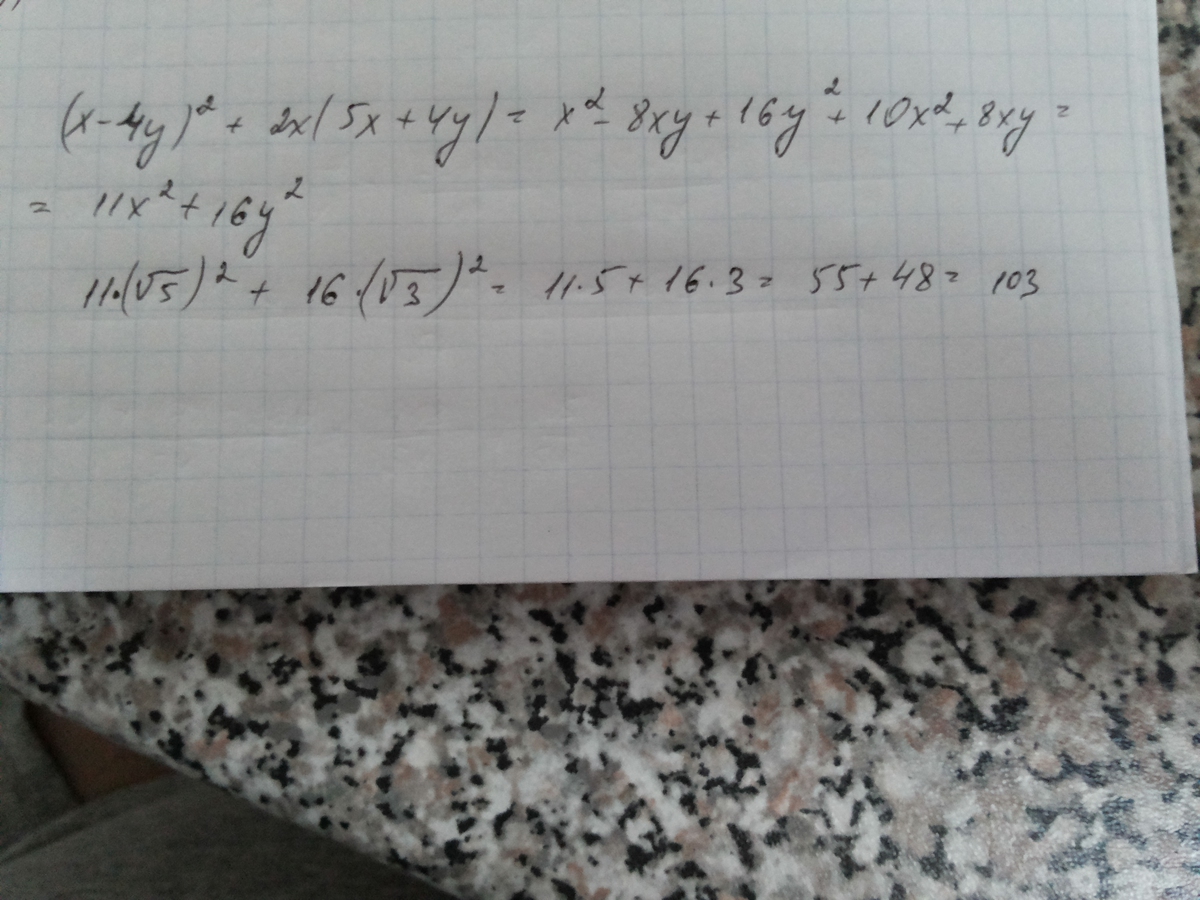 (x-4y)² + 2x(5x+4y) = x² - 8xy + 16y² + 10x² + 8xy =
= 11x² + 16y²
11·(√5)² + 16·(√3)² = 11·5 + 16·3 = 55 + 48 = 103